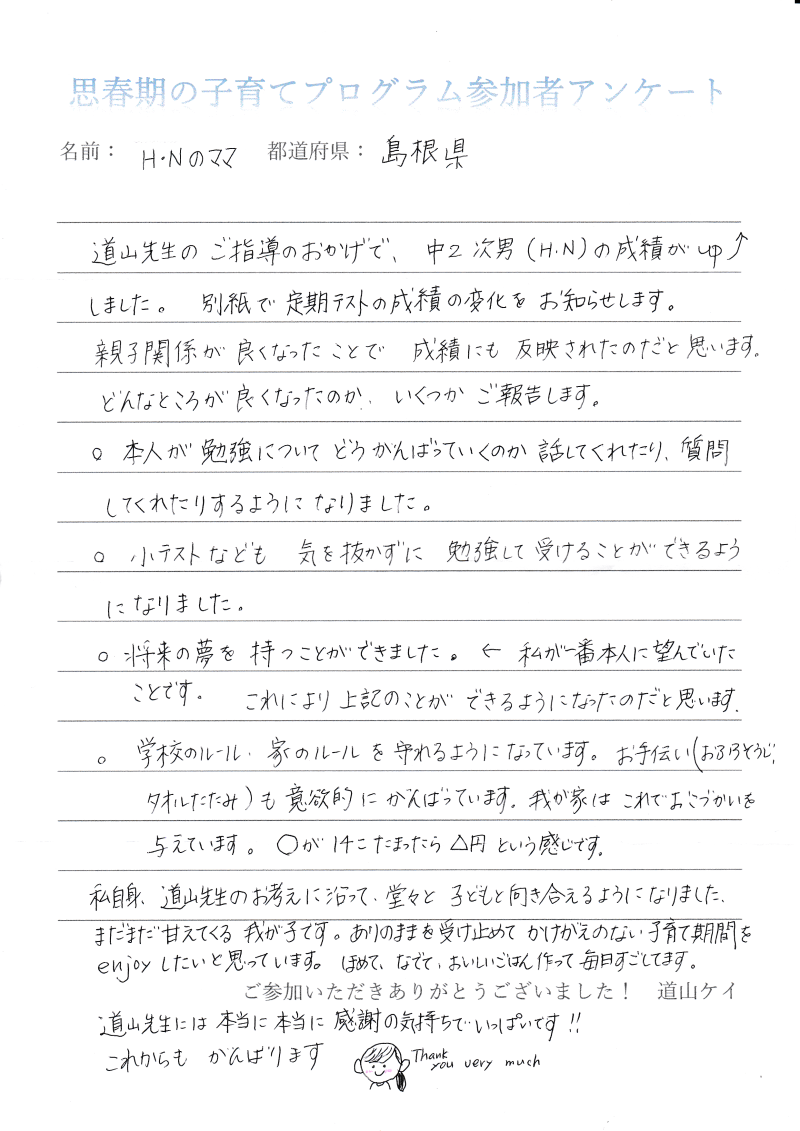 思春期の子育てプログラム参加者アンケート
名前： H・Nのママ 都道府県： 島根県
道山先生の ご指導のおかげで、 中2 次男 (H・N) の成績が up↑
しました。 別紙で 定期テストの成績の変化を お知らせします。
親子関係が 良くなったことで 成績にも 反映されたのだと思います。
どんなところが 良くなったのか、いくつか ご報告します。
○ 本人が 勉強について どうがんばっていくのか 話してくれたり、質問
してくれたりするようになりました。
○ 小テストなども 気を抜かずに 勉強して 受けることができるよう
になりました。
○ 将来の夢を 持つことができました。 ← 私が一番本人に望んでいた
ことです。 これにより 上記のことが できるようになったのだと思います。
○ 学校のルール・家のルールを 守れるようになっています。 お手伝い(おふろそうじ、
タオルたたみ)も 意欲的に がんばっています。我が家は これでおこづかいを
与えています。 ○が 14こたまったら △円 という感じです。
私自身、道山先生のお考えに沿って、堂々と 子どもと向き合えるようになりました、
まだまだ甘えてくる 我が子です。ありのままを受け止めて かけがえのない子育て期間を
enjoyしたいと思っています。 ほめて、なでて、おいしいごはん作って 毎日すごしてます。
ご参加いただきありがとうございました！ 道山ケイ
道山先生には 本当に本当に 感謝の気持ちでいっぱいです!!
これからも がんばります Thank you very much